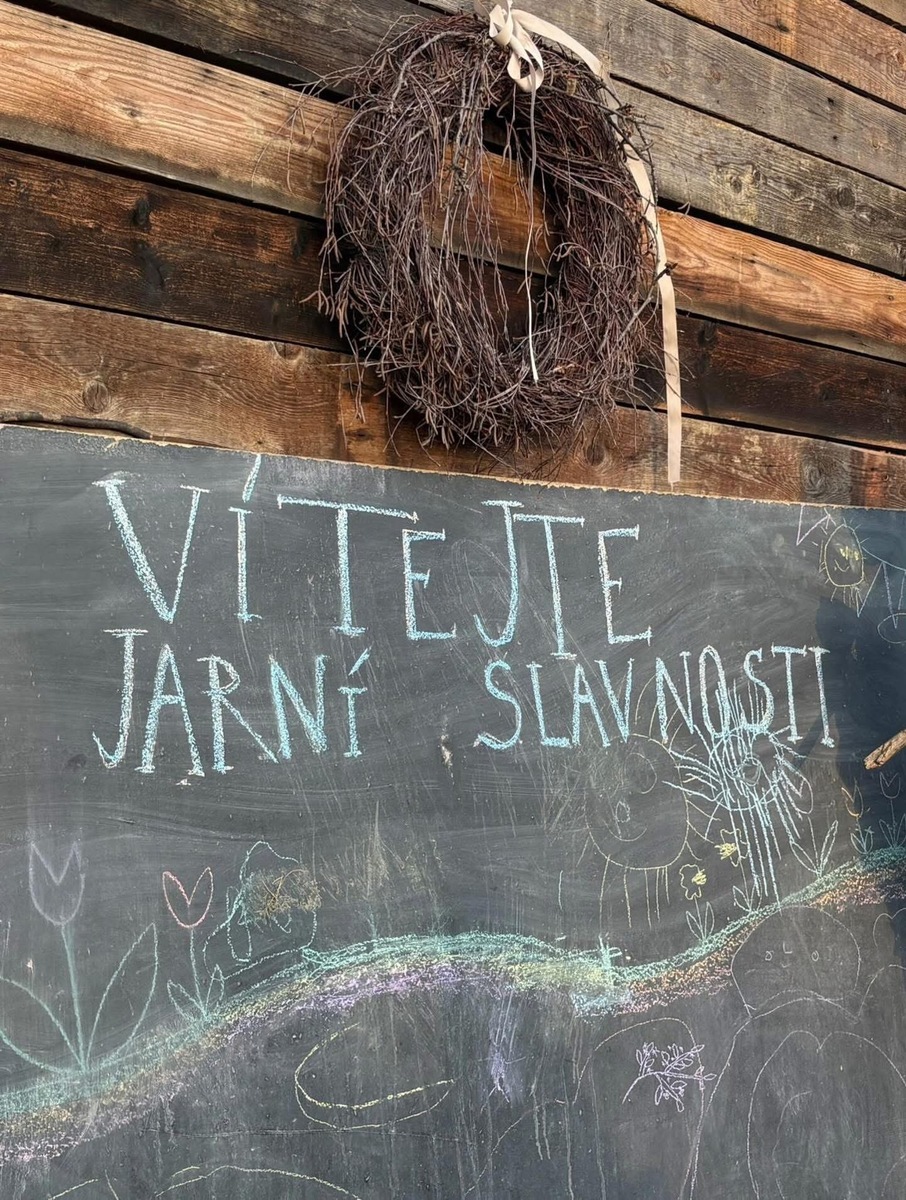 VÍTEJTE
JARNÍ SLAVNOSTI